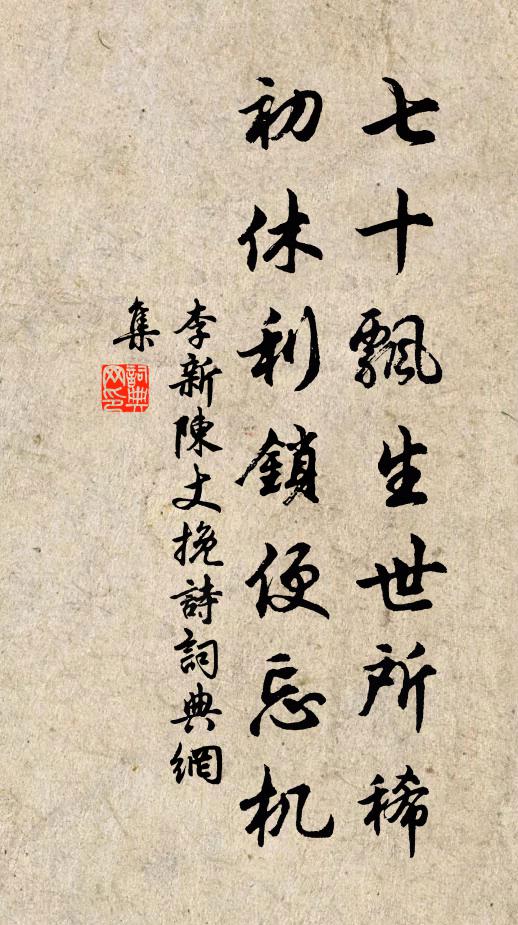 七十飄生世所稀
初休利鎖便忘机
李新陳丈挽詩詞典網
集
詞典
网印